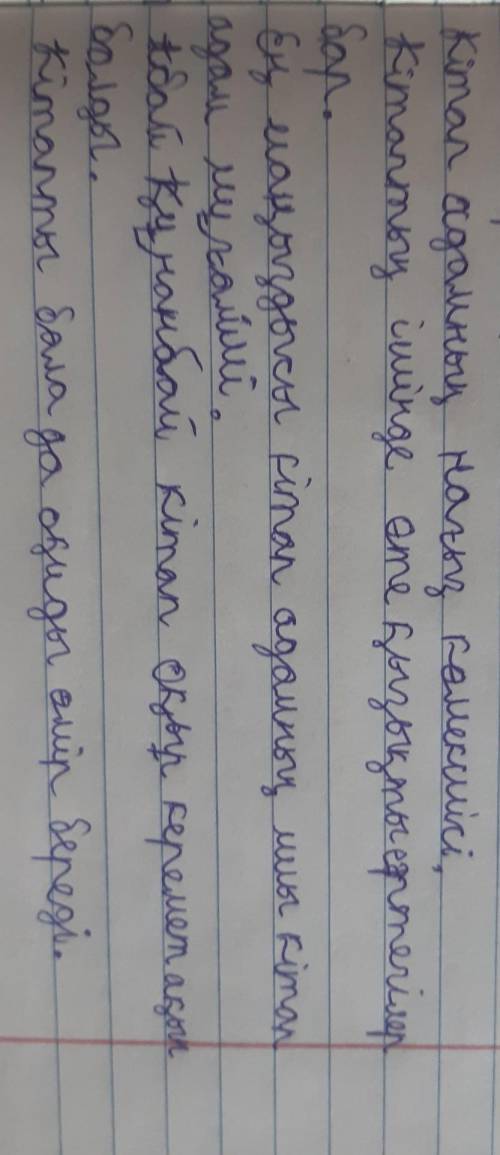 Кітап адамның нағыз көмекшісі,
Кітаптың ішінде өте қызықты ертегілер
бар.
Ең маңыздысы кітап адамның мың кітап
адам мұғалімі.
Абай Құнанбай кітап оқып керемет ақын
болды.
Кітапты бала да оқиды өмір береді.